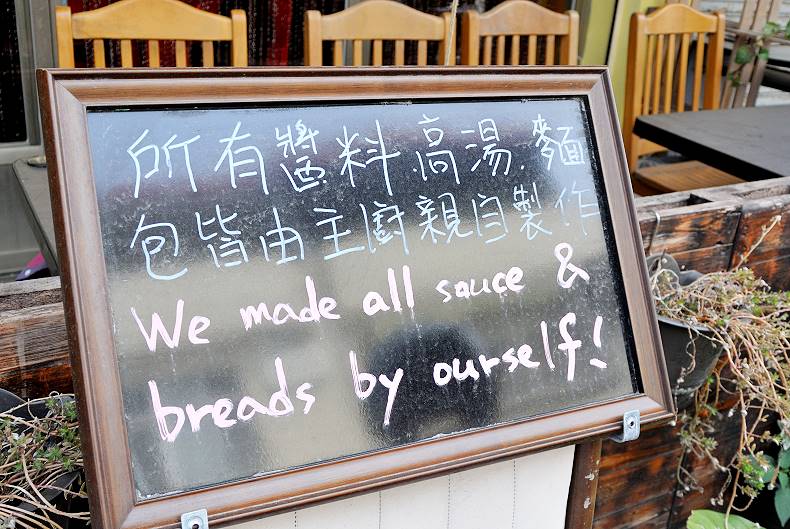 所有醬料.高湯.麵
包皆由主廚親自製作
We made all sauce &
breads by ourself!